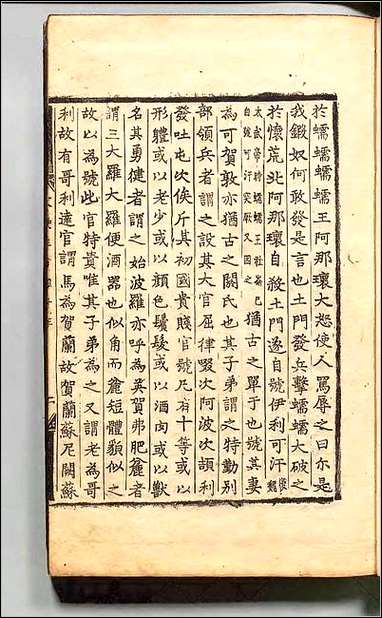 於蠕蠕蠕王阿那瓌大怒使人罵辱之曰尒是
我鍛奴何敢發是言也土門發兵擊蠕蠕大破之
於懷荒北阿那瓌自殺土門遂自號伊利可汗後魏
太武帝時蠕蠕王社崙已自號可汗突厥又因之猶古之單于也號其妻
為可賀敦亦猶古之閼氏也其子弟謂之特勤別
部領兵者謂之設其大官屈律啜次阿波次頡利
發吐屯次俟斤其初國貴賤官號凡有十等或以
形體或以老少或以顏色鬚髮或以酒肉或以獸
名其勇健者謂之始波羅亦呼為英賀弗肥麄者
謂三大羅大羅便酒器也似角而麄短體貌似之
故以為號此官特貴唯其子弟為之又謂老為哥
利故有哥利達官謂馬為賀蘭故賀蘭蘇尼闕蘇